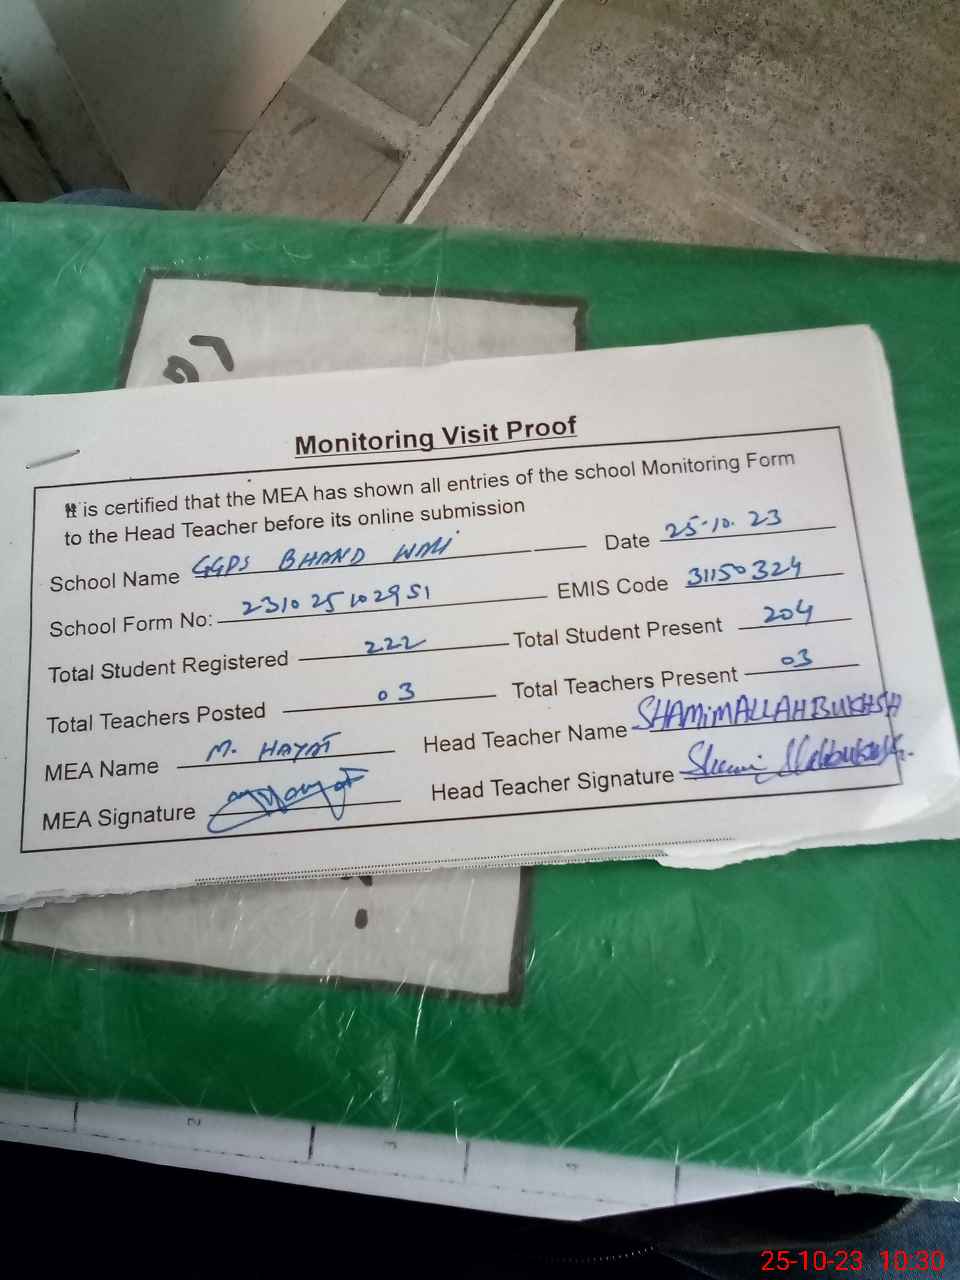 Monitoring Visit Proof
It is certified that the MEA has shown all entries of the school Monitoring Form
to the Head Teacher before its online submission
School Name GGPS BHAND WALI Date 25-10-23
School Form No: 23102510 2951 EMIS Code 31150324
Total Student Registered 222 Total Student Present 204
Total Teachers Posted 03 Total Teachers Present 03
MEA Name M. HAYAT Head Teacher Name SHAMIM ALLAH BUKHSH
MEA Signature Head Teacher Signature
2 3 4
25-10-23 10:30